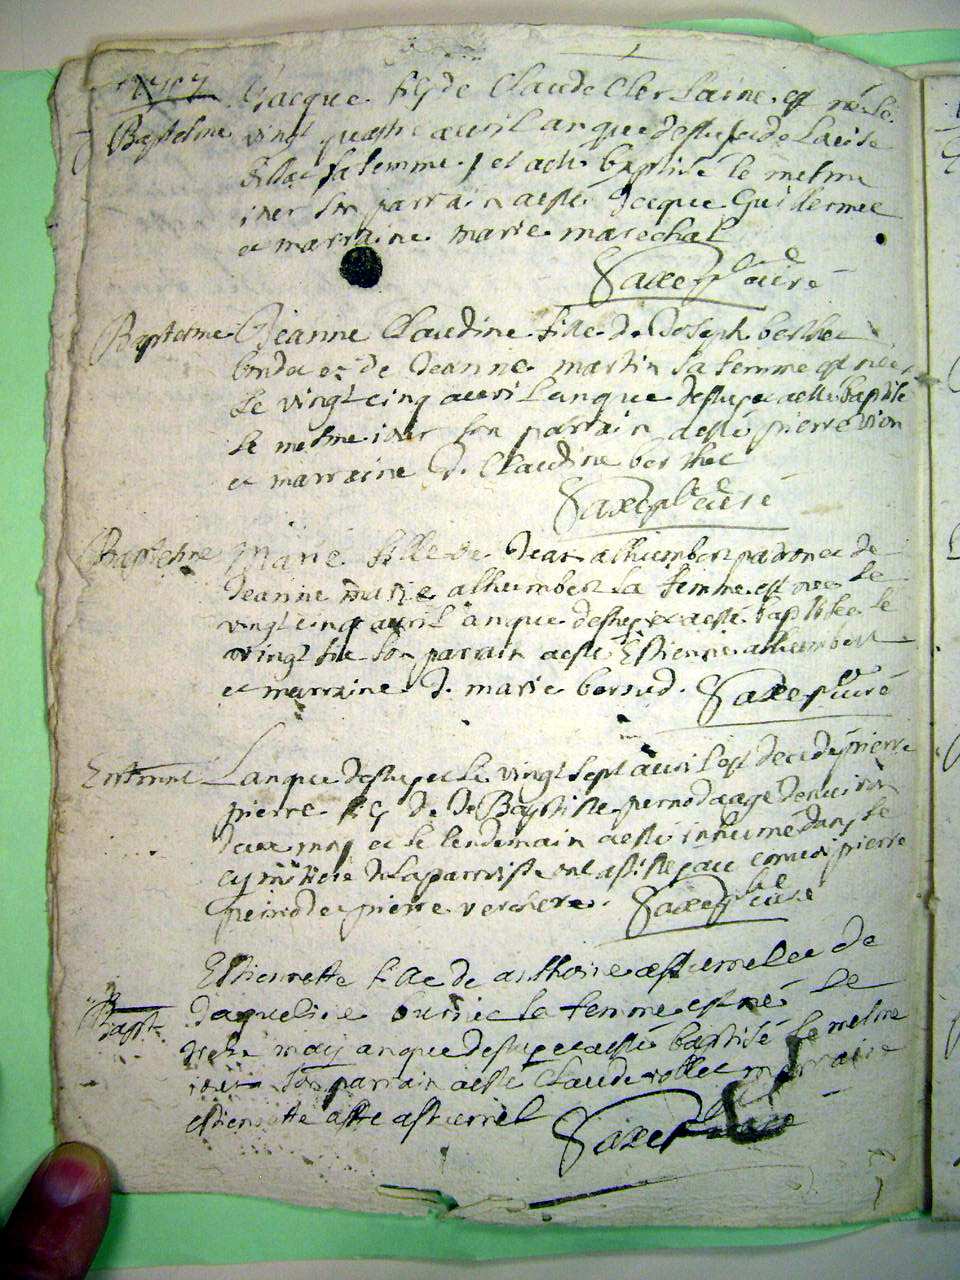 Jacque fils de Claude Clerlaine est né le
Baptesme vingt quattre auvril an que dessus et de
sa femme et a esté baptisé le mesme
iour son parrain a esté Jacque Guillermet
et marraine marie marechal
Saxe curé
Baptesme Jeanne Claudine fille de Joseph berthet
et de Jeanne martin sa femme est née
le vingt cinq auvril an que dessus et a esté baptisé
le mesme iour son parrain a esté pierre vion
et marraine d. Claudine berthet
Saxe curé
Baptesme Marie fille de Jean alhumbert et de
Jeanne marie alhumbert sa femme est née le
vingt cinq auvril an que dessus et a esté baptisée le
vingt six son parrain a esté Estienne alhumbert
et marraine d. marie bornud. Saxe curé
Enterrement L'an que dessus et le vingt sept auvril est decede pierre
pierre fils de Baptiste pernod aagé d'enuiron
deux mois et le lendemain a esté inhumé dans le
cymistiere de la parroisse ont assisté au conuoi pierre
pernod et pierre verchere. Saxe curé
Estiennette fille de anthoine et de
Bapt. Jaqueline sa femme est née le
may an que dessus et a esté baptisé le mesme
iour son parrain a esté Claude rollet marraine
estiennette
Saxe curé